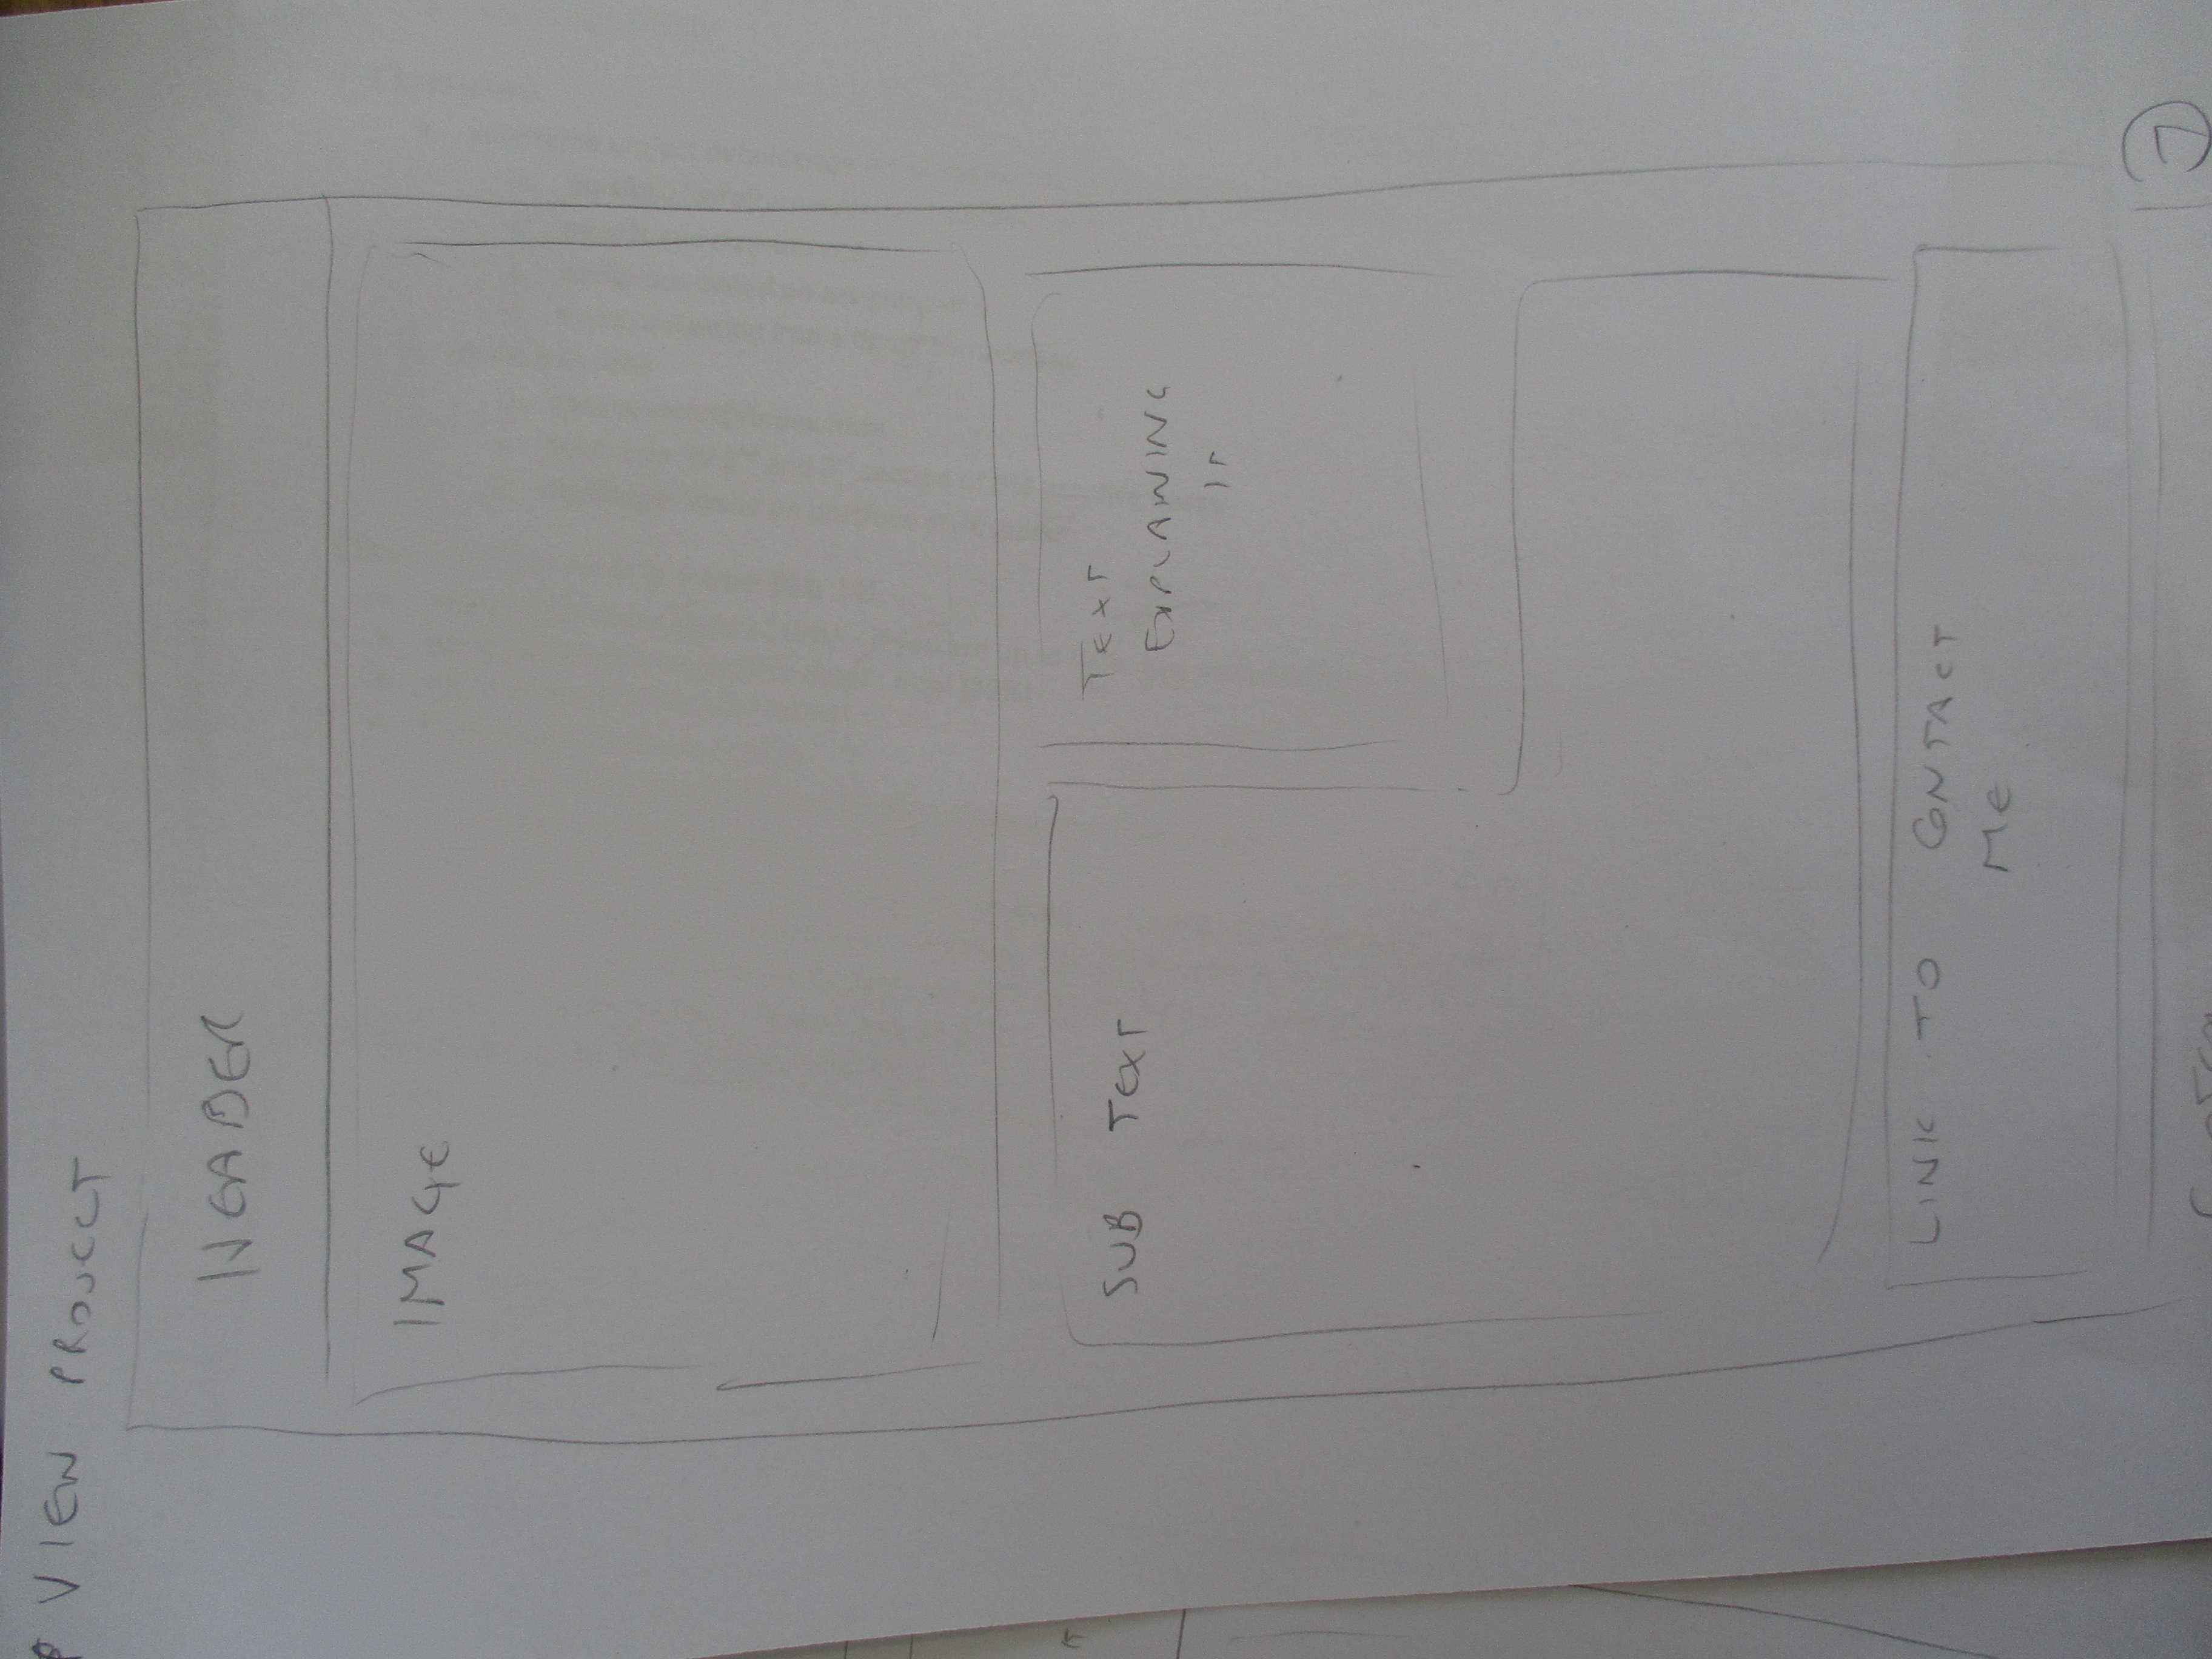 VIEW PROJECT
HEADER
IMAGE
SUB TEXT
TEXT
EXPLAINING
IT
LINK TO CONTACT
ME